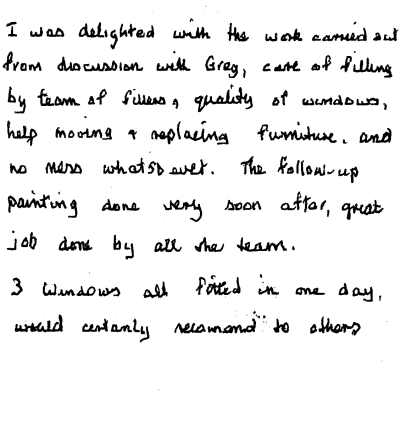 I was delighted with the work carried out
from discussion with Greg, care of filling
by team of fillers & quality of windows,
help moving & replacing furniture, and
no mess whatsoever. The follow-up
painting done very soon after, great
job done by all the team.
3 Windows all fitted in one day,
would certanly recomand to others